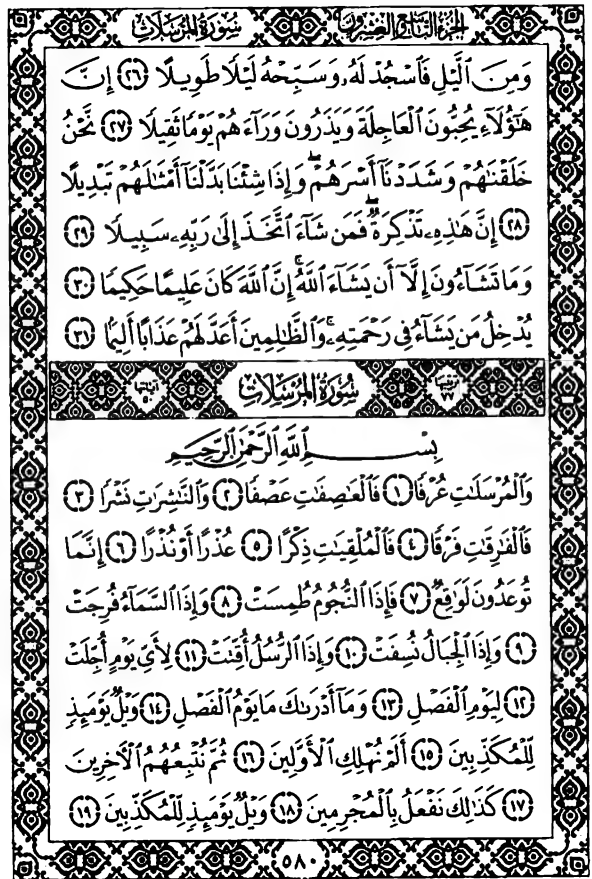 الجزء التاسع والعشرون سورة المرسلات
وَمِنَ ٱلَّيْلِ فَٱسْجُدْ لَهُۥ وَسَبِّحْهُ لَيْلًا طَوِيلًا ٢٦ إِنَّ
هَٰٓؤُلَآءِ يُحِبُّونَ ٱلْعَاجِلَةَ وَيَذَرُونَ وَرَآءَهُمْ يَوْمًا ثَقِيلًا ٢٧ نَّحْنُ
خَلَقْنَٰهُمْ وَشَدَدْنَآ أَسْرَهُمْ ۖ وَإِذَا شِئْنَا بَدَّلْنَآ أَمْثَٰلَهُمْ تَبْدِيلًا
٢٨ إِنَّ هَٰذِهِۦ تَذْكِرَةٌ ۖ فَمَن شَآءَ ٱتَّخَذَ إِلَىٰ رَبِّهِۦ سَبِيلًا ٢٩
وَمَا تَشَآءُونَ إِلَّآ أَن يَشَآءَ ٱللَّهُ ۚ إِنَّ ٱللَّهَ كَانَ عَلِيمًا حَكِيمًا ٣٠
يُدْخِلُ مَن يَشَآءُ فِى رَحْمَتِهِۦ ۚ وَٱلظَّٰلِمِينَ أَعَدَّ لَهُمْ عَذَابًا أَلِيمًۢا ٣١
ترتيبها ٧٧ سورة المرسلات آياتها ٥٠
بِسْمِ ٱللَّهِ ٱلرَّحْمَٰنِ ٱلرَّحِيمِ
وَٱلْمُرْسَلَٰتِ عُرْفًا ١ فَٱلْعَٰصِفَٰتِ عَصْفًا ٢ وَٱلنَّٰشِرَٰتِ نَشْرًا ٣
فَٱلْفَٰرِقَٰتِ فَرْقًا ٤ فَٱلْمُلْقِيَٰتِ ذِكْرًا ٥ عُذْرًا أَوْ نُذْرًا ٦ إِنَّمَا
تُوعَدُونَ لَوَٰقِعٌ ٧ فَإِذَا ٱلنُّجُومُ طُمِسَتْ ٨ وَإِذَا ٱلسَّمَآءُ فُرِجَتْ
٩ وَإِذَا ٱلْجِبَالُ نُسِفَتْ ١٠ وَإِذَا ٱلرُّسُلُ أُقِّتَتْ ١١ لِأَىِّ يَوْمٍ أُجِّلَتْ
١٢ لِيَوْمِ ٱلْفَصْلِ ١٣ وَمَآ أَدْرَىٰكَ مَا يَوْمُ ٱلْفَصْلِ ١٤ وَيْلٌ يَوْمَئِذٍ
لِّلْمُكَذِّبِينَ ١٥ أَلَمْ نُهْلِكِ ٱلْأَوَّلِينَ ١٦ ثُمَّ نُتْبِعُهُمُ ٱلْءَاخِرِينَ
١٧ كَذَٰلِكَ نَفْعَلُ بِٱلْمُجْرِمِينَ ١٨ وَيْلٌ يَوْمَئِذٍ لِّلْمُكَذِّبِينَ ١٩
٥٨٠